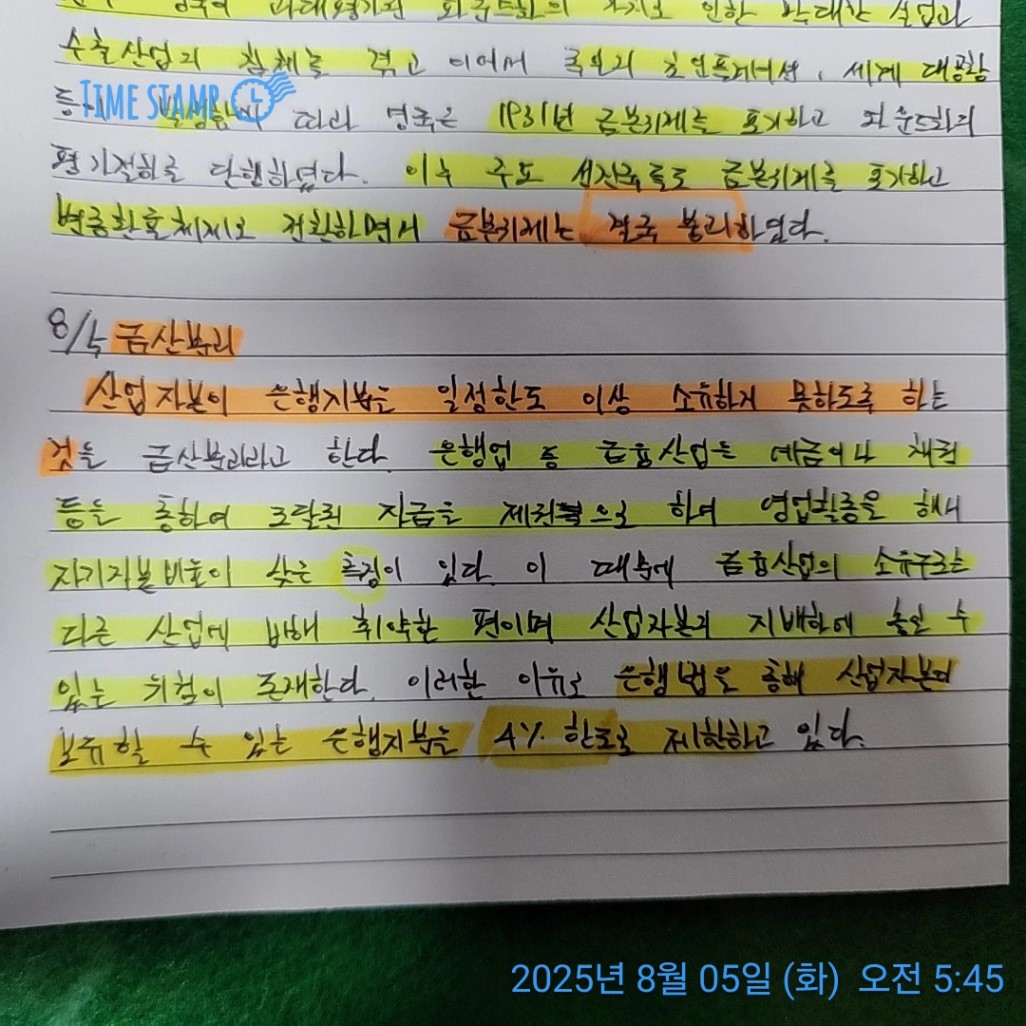 과대평가된 파운드화의 가치로 인한 막대한 실업과
수출산업의 침체를 겪고 이어서 독일의 초인플레이션, 세계 대공황
TIME STAMP
등이 발생함에 따라 영국은 1931년 금본위제를 포기하고 파운드화의
평가절하를 단행하였다. 이후 주도 선진국들도 금본위제를 포기하고
변동환율체제로 전환하면서 금본위제는 결국 붕괴하였다.
8/5 금산분리
산업자본이 은행지분을 일정한도 이상 소유하지 못하도록 하는
것을 금산분리라고 한다. 은행업 등 금융산업은 예금이나 채권
등을 통하여 조달된 자금을 재원으로 하여 영업활동을 해서
자기자본비율이 낮은 특징이 있다. 이 때문에 금융산업의 소유구조는
다른 산업에 비해 취약한 편이며 산업자본의 지배하에 놓일 수
있는 위험이 존재한다. 이러한 이유로 은행법을 통해 산업자본이
보유할 수 있는 은행지분을 4% 한도로 제한하고 있다.
2025년 8월 05일 (화) 오전 5:45